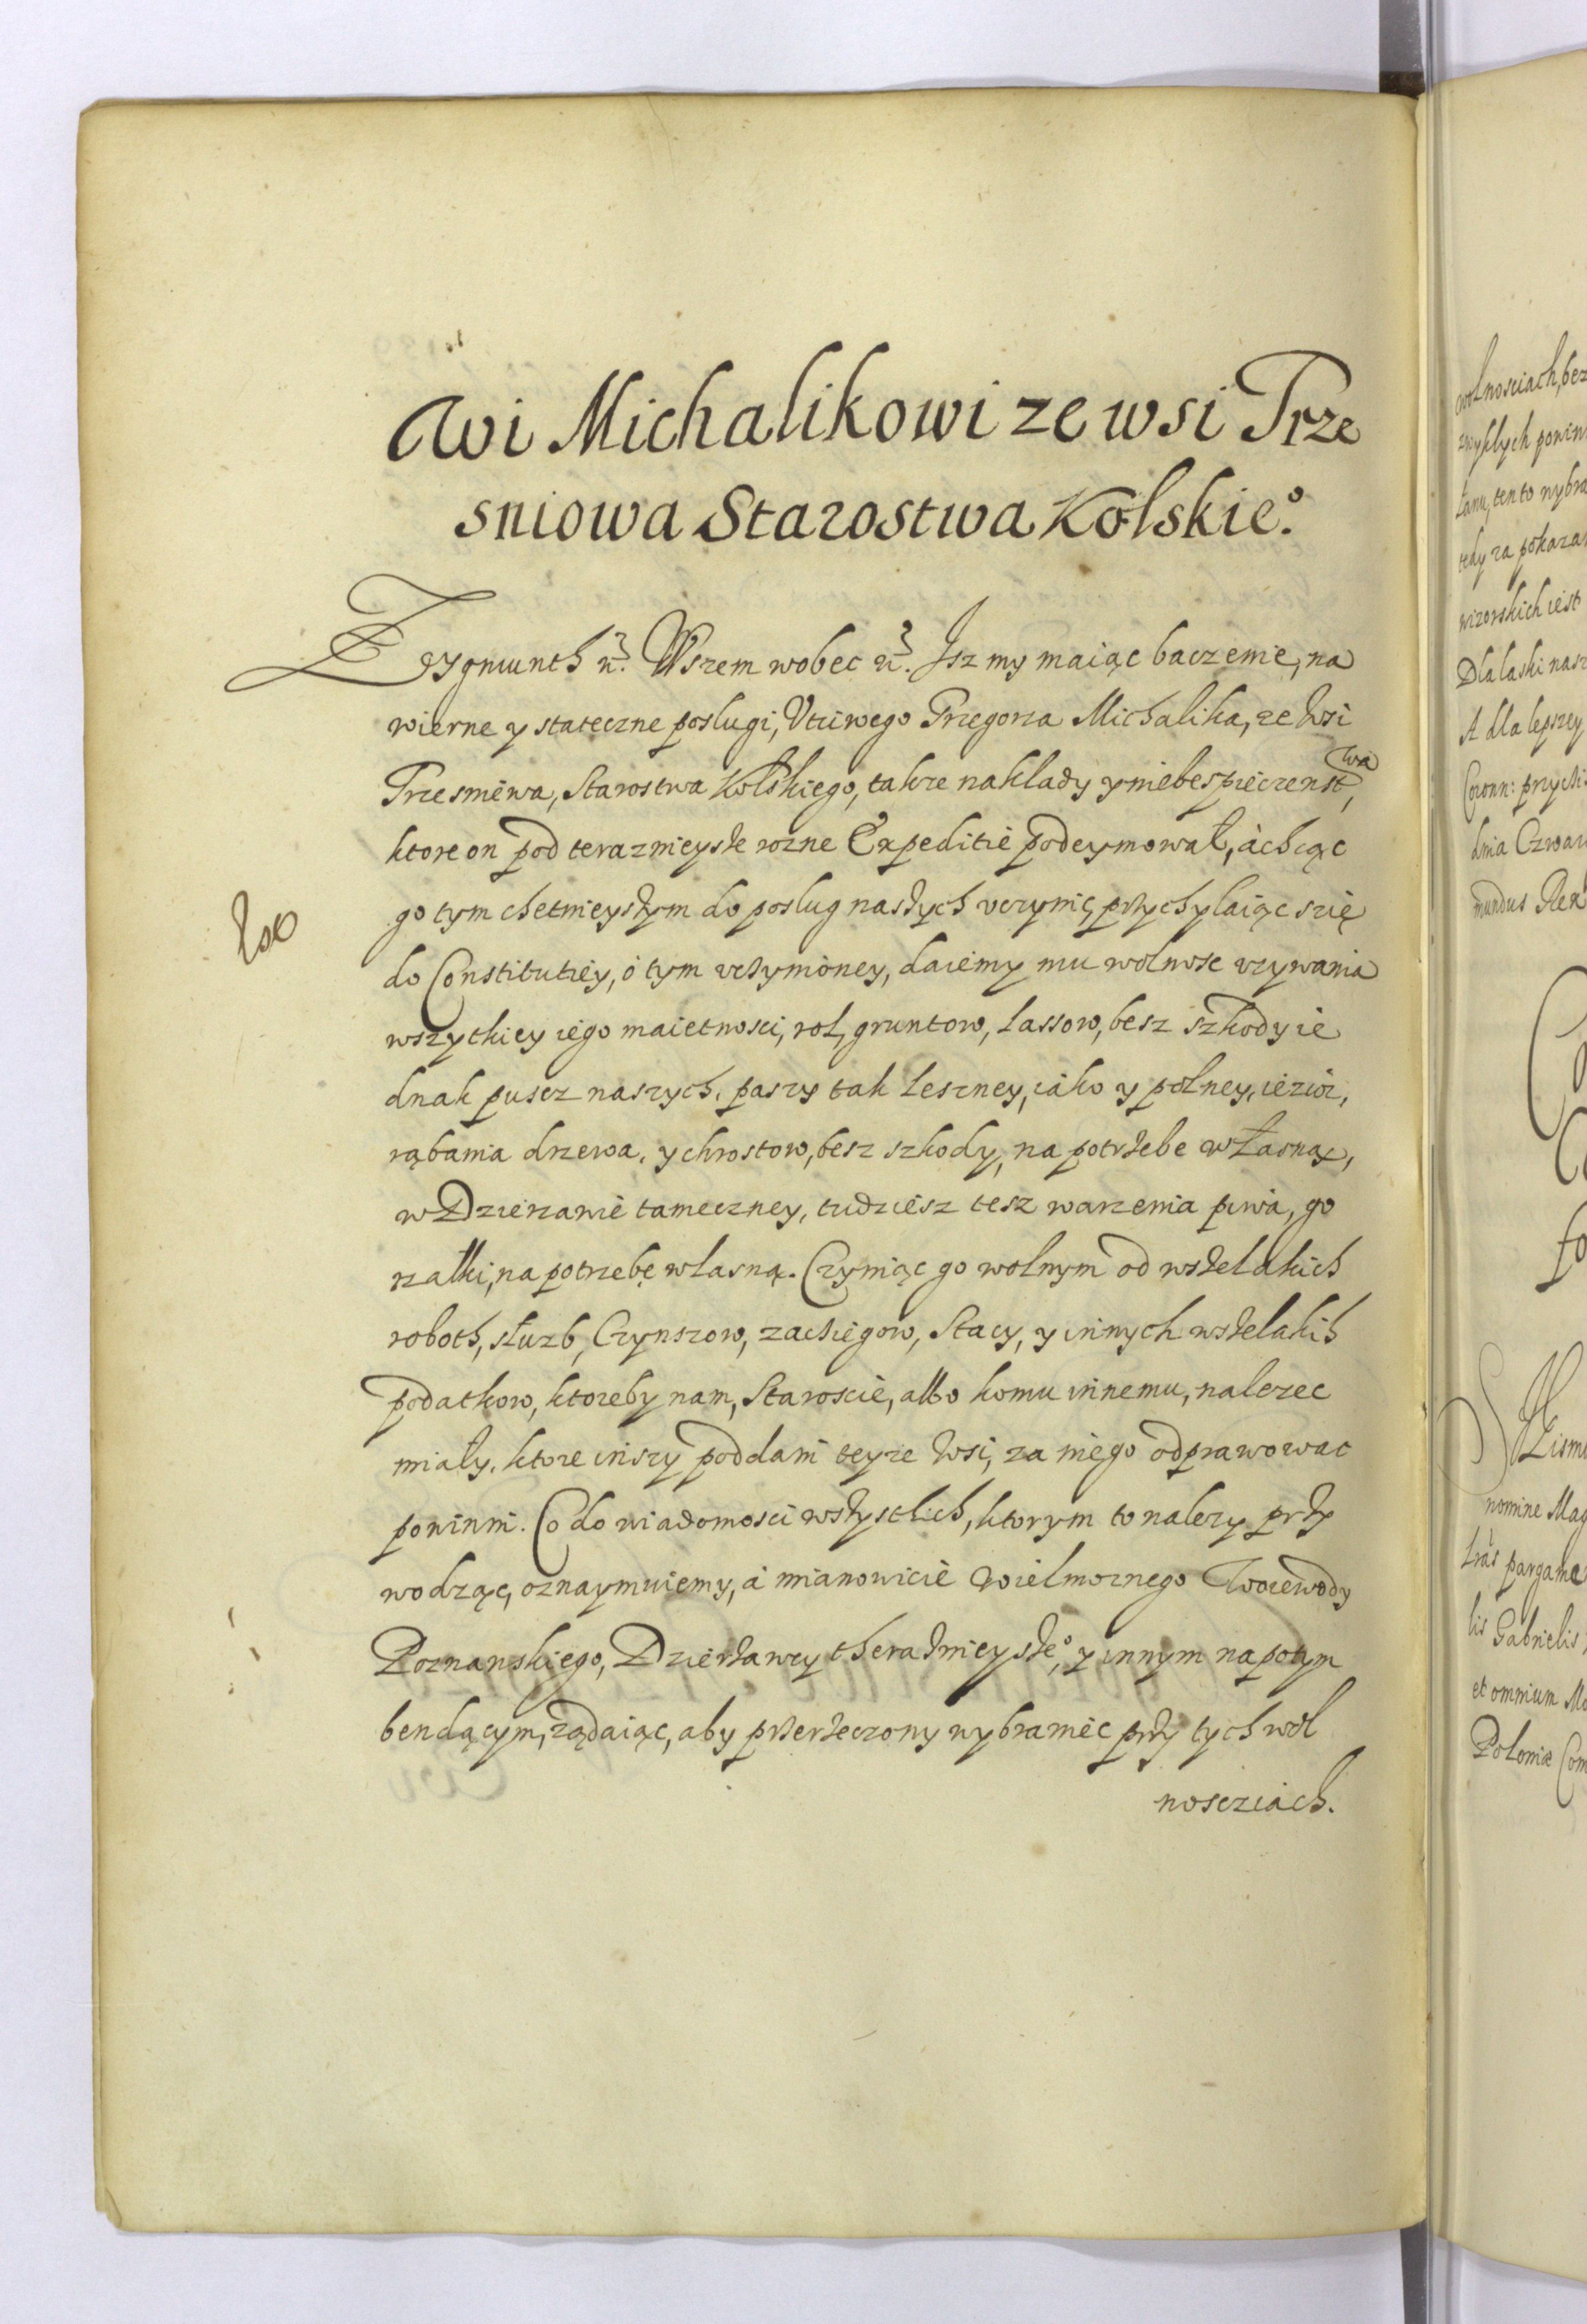 Awi Michalikowi ze wsi Trze
sniowa Starostwa Kolskie°.
Zÿgmunth etc. Wszem wobec etc. Jsz my maiąc baczenie, na
wierne y stateczne poslugi, Vtciwego Grzegorza Michalika, ze wsi
Trzesniewa, Starostwa Kolskiego, takze naklady y niebespieczenstwa,
ktore on pod teraznieysze rozne Expeditie podeymował, a chcąc
go tym chetnieyszym do poslug naszych vczynić, przychylaiąc szię
do Constitutiey, o tym vczynioney, daiemy mu wolnosc vzywania
wszytkiey iego maietnosci, rol, gruntow, lassow, besz szkody ie
dnak puscz naszych, paszy tak leszney, iako y polney, iezior,
rąbania drzewa, y chrostow, besz szkody, na potrzebe własną,
w Dzierzawie tameczney, tudziesz tesz warzenia piwa, go
rzalki, na potrzebę wlasną. Czyniąc go wolnym od wszelakich
roboth, służb, Czynszow, zaciięgow, Stacy, y innych wszelakich
podatkow, ktoreby nam, Staroscie, albo komu innemu, nalezec
miały, ktore inszy poddani teyze wsi, za niego odprawowac
powinni. Co do wiadomosci wszystkich, ktorym to nalezy przy
wodząc, oznaymuiemy, a mianowicie Wielmoznego Woiewody
Poznanskiego, Dzierzawcy therazнieysze°, y innym napotym
bendącym, ządaiąc, aby przerzeczony wybraniec przy tych wol
nosciach.
wolnosciach, bez
zwyklych powin
łanu, ten to wybra
tedy za pokazan
wizorskich iest
Dla laski nasz
A dla lepszey
Coronn: przycis
dnia Czwar
mundus Rex
nomine Mag
tras pargame
lis Gabrielis
et omnium Mo
Poloniæ Com